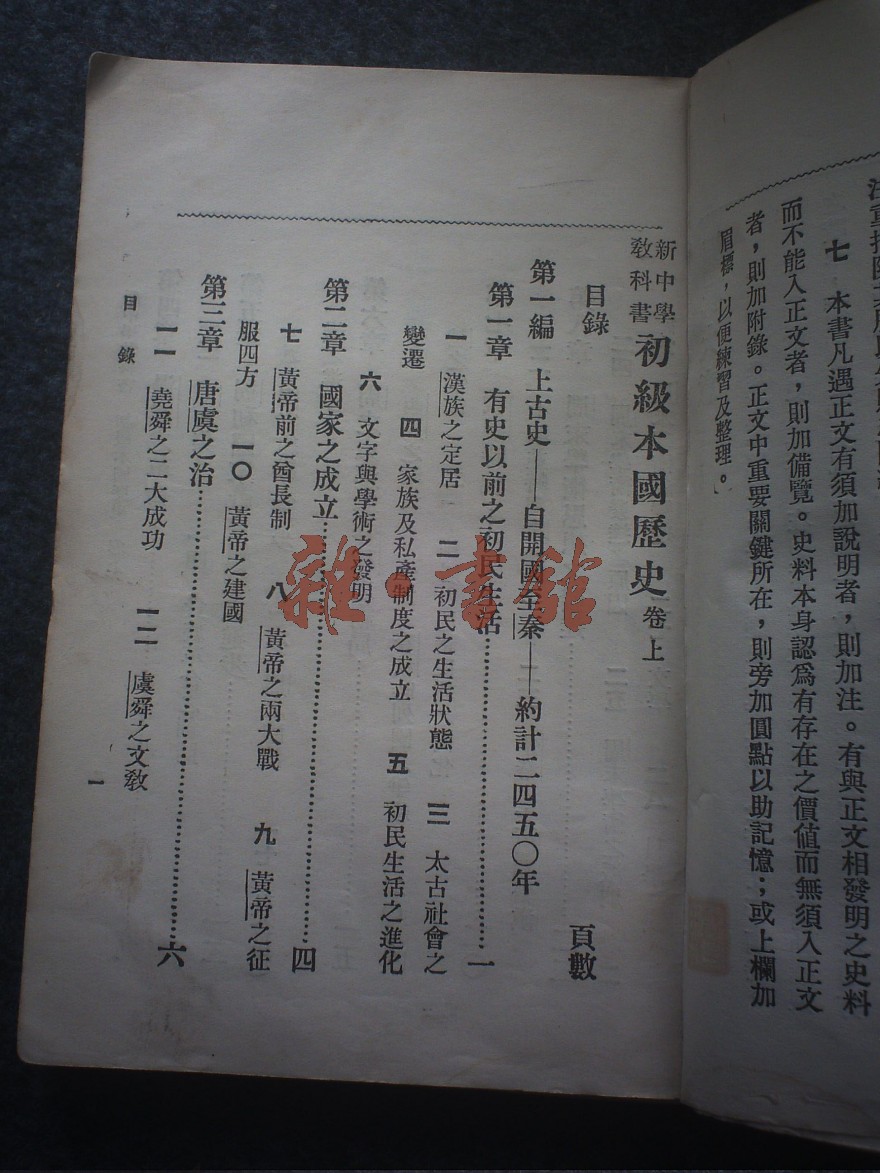 七　本書凡遇正文有須加說明者，則加注。有與正文相發明之史料
而不能入正文者，則加備覽。史料本身認爲有存在之價値而無須入正文
者，則加附錄。正文中重要關鍵所在，則旁加圓點以助記憶；或上欄加
眉標，以便練習及整理。
新中學教科書 初級本國歷史 卷上
目錄 頁數
第一編　上古史——自開國至秦——約計二四五〇年
第一章　有史以前之初民生活…………一
一　漢族之定居　二　初民之生活狀態　三　太古社會之
變遷　四　家族及私產制度之成立　五　初民生活之進化
六　文字與學術之發明
第二章　國家之成立…………四
七　黃帝前之酋長制　八　黃帝之兩大戰　九　黃帝之征
服四方　一〇　黃帝之建國
第三章　唐虞之治…………六
一一　堯舜之二大成功　一二　虞舜之文教
目錄
一
雜·書館